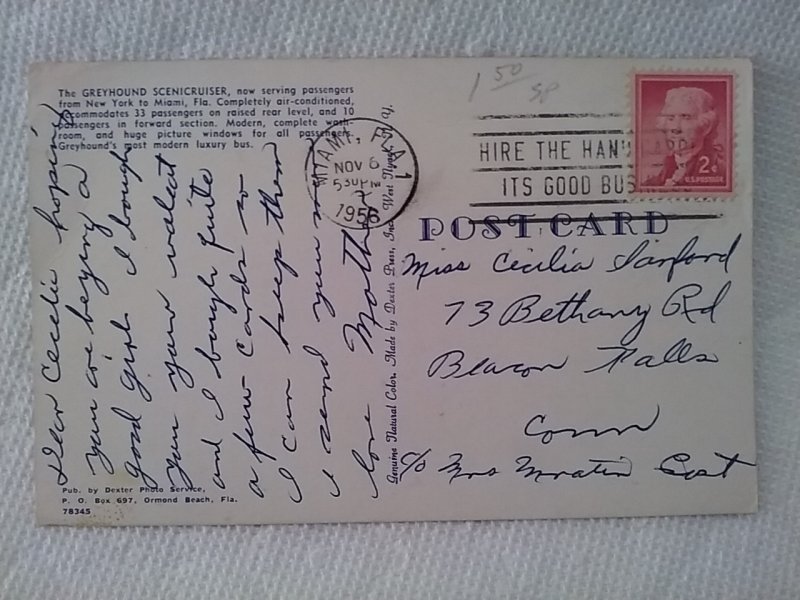 The GREYHOUND SCENICRUISER, now serving passengers
from New York to Miami, Fla. Completely air-conditioned,
accommodates 33 passengers on raised rear level, and 10
passengers in forward section. Modern, complete wash-
room, and huge picture windows for all passengers.
Greyhound's most modern luxury bus.
Dear Cecelie hoping
you are beying a
good girl I bough
you your waleat
and I bough quite
a few cards so
I can keep them
I send you my
love Mother
Pub. by Dexter Photo Service,
P. O. Box 697, Ormond Beach, Fla.
78345
Genuine Natural Color. Made by Dexter Press, Inc. West Nyack, N. Y.
1 50
MIAMI, FLA 1
NOV 6
5 30 PM
1956
HIRE THE HANDICAPPED
ITS GOOD BUSINESS
2¢
U.S. POSTAGE
POST CARD
Miss Cecilia Sanford
73 Bethany Rd
Beacon Falls
Conn
c/o Mrs